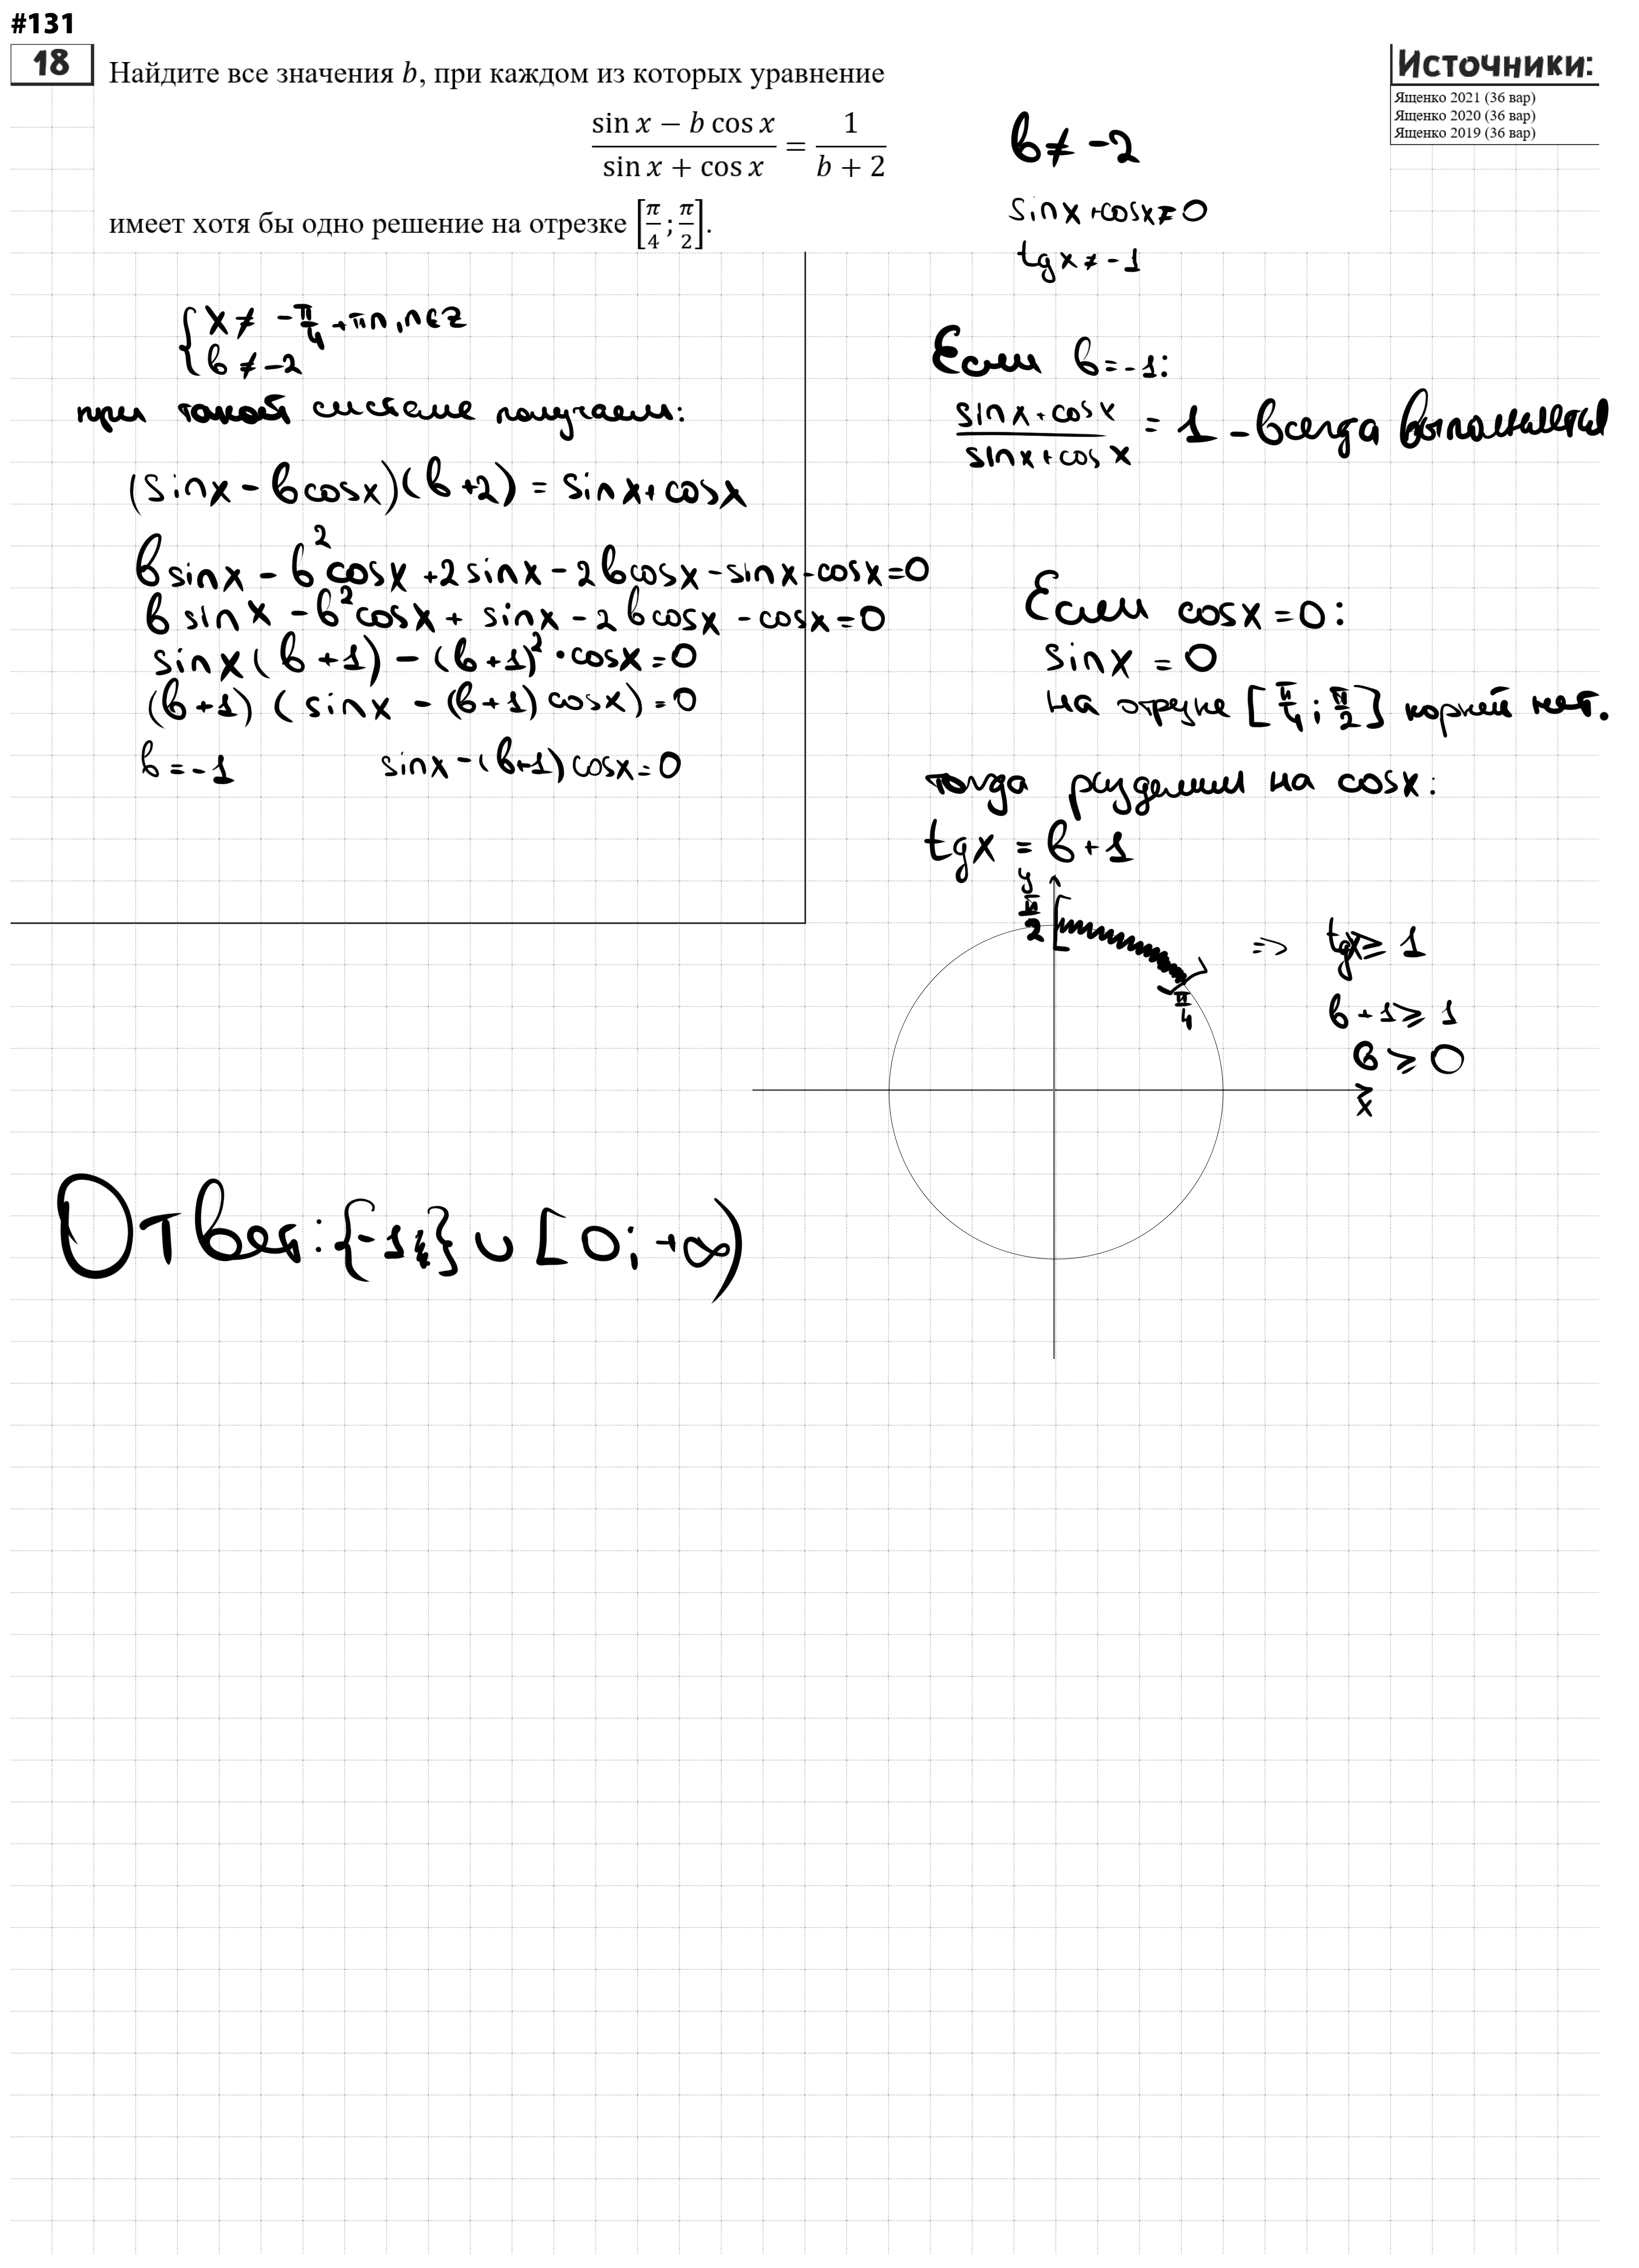 #131
18
Найдите все значения b, при каждом из которых уравнение
(sin x − b cos x)/(sin x + cos x) = 1/(b + 2)
имеет хотя бы одно решение на отрезке [π/4; π/2].
Источники:
Ященко 2021 (36 вар)
Ященко 2020 (36 вар)
Ященко 2019 (36 вар)
b ≠ -2
sinx + cosx ≠ 0
tgx ≠ -1
{ x ≠ -π/4 + πn, n∈Z
b ≠ -2
при такой системе получаем:
(sinx - bcosx)(b+2) = sinx + cosx
bsinx - b²cosx + 2sinx - 2bcosx - sinx - cosx = 0
bsinx - b²cosx + sinx - 2bcosx - cosx = 0
sinx(b+1) - (b+1)²·cosx = 0
(b+1)(sinx - (b+1)cosx) = 0
b = -1 sinx - (b+1)cosx = 0
Если b = -1:
(sinx + cosx)/(sinx + cosx) = 1 - всегда выполняется
Если cosx = 0:
sinx = 0
на отрезке [π/4; π/2] корней нет.
тогда разделим на cosx:
tgx = b + 1
y
π/2
π/4
x
=> tgx ≥ 1
b + 1 ≥ 1
b ≥ 0
Ответ: {-1} ∪ [0; +∞)